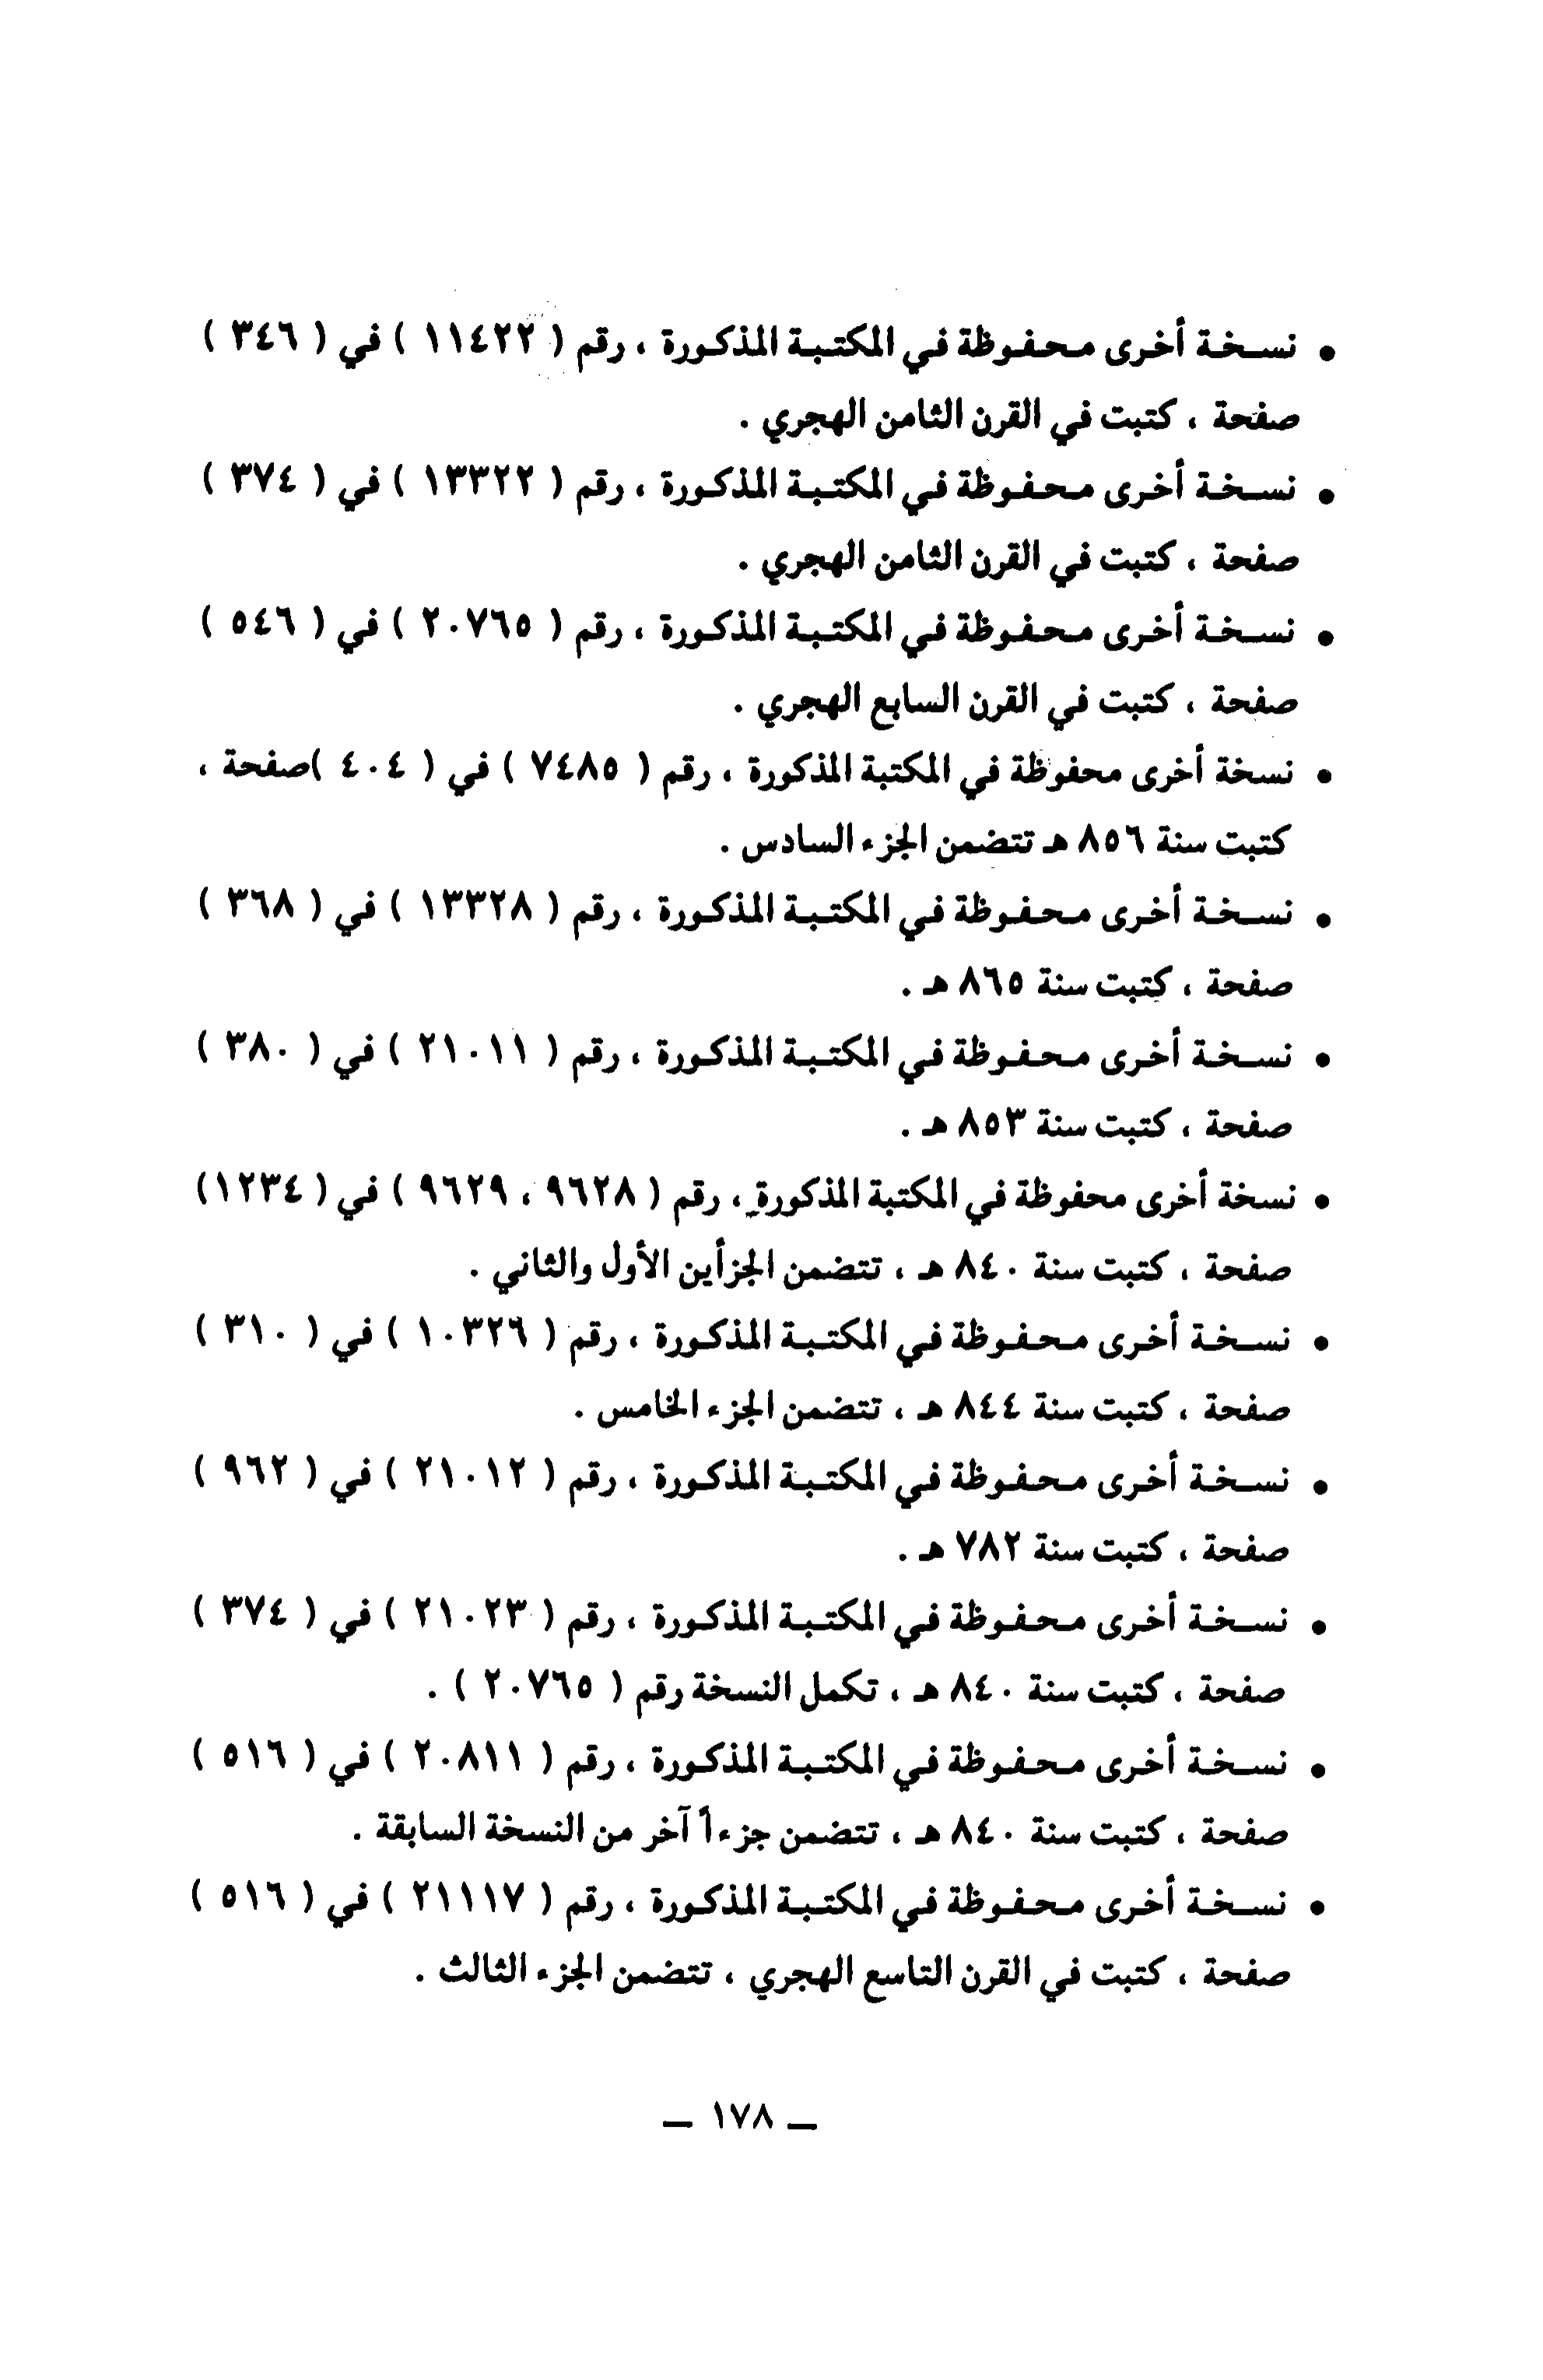 • نسخة أخرى محفوظة في المكتبة المذكورة ، رقم ( ١١٤٢٢ ) في ( ٣٤٦ )
صفحة ، كتبت في القرن الثامن الهجري .
• نسخة أخرى محفوظة في المكتبة المذكورة ، رقم ( ١٣٣٢٢ ) في ( ٣٧٤ )
صفحة ، كتبت في القرن الثامن الهجري .
• نسخة أخرى محفوظة في المكتبة المذكورة ، رقم ( ٢٠٧٦٥ ) في ( ٥٤٦ )
صفحة ، كتبت في القرن السابع الهجري .
• نسخة أخرى محفوظة في المكتبة المذكورة ، رقم ( ٧٤٨٥ ) في ( ٤٠٤ )صفحة ،
كتبت سنة ٨٥٦ هـ تتضمن الجزء السادس .
• نسخة أخرى محفوظة في المكتبة المذكورة ، رقم ( ١٣٣٢٨ ) في ( ٣٦٨ )
صفحة ، كتبت سنة ٨٦٥ هـ .
• نسخة أخرى محفوظة في المكتبة المذكورة ، رقم ( ٢١٠١١ ) في ( ٣٨٠ )
صفحة ، كتبت سنة ٨٥٣ هـ .
• نسخة أخرى محفوظة في المكتبة المذكورة ، رقم ( ٩٦٢٨ ، ٩٦٢٩ ) في ( ١٢٣٤)
صفحة ، كتبت سنة ٨٤٠ هـ ، تتضمن الجزأين الأول والثاني .
• نسخة أخرى محفوظة في المكتبة المذكورة ، رقم ( ١٠٣٢٦ ) في ( ٣١٠ )
صفحة ، كتبت سنة ٨٤٤ هـ ، تتضمن الجزء الخامس .
• نسخة أخرى محفوظة في المكتبة المذكورة ، رقم ( ٢١٠١٢ ) في ( ٩٦٢ )
صفحة ، كتبت سنة ٧٨٢ هـ .
• نسخة أخرى محفوظة في المكتبة المذكورة ، رقم ( ٢١٠٢٣ ) في ( ٣٧٤ )
صفحة ، كتبت سنة ٨٤٠ هـ ، تكمل النسخة رقم ( ٢٠٧٦٥ ) .
• نسخة أخرى محفوظة في المكتبة المذكورة ، رقم ( ٢٠٨١١ ) في ( ٥١٦ )
صفحة ، كتبت سنة ٨٤٠ هـ ، تتضمن جزءاً آخر من النسخة السابقة .
• نسخة أخرى محفوظة في المكتبة المذكورة ، رقم ( ٢١١١٧ ) في ( ٥١٦ )
صفحة ، كتبت في القرن التاسع الهجري ، تتضمن الجزء الثالث .
ـ ١٧٨ ـ